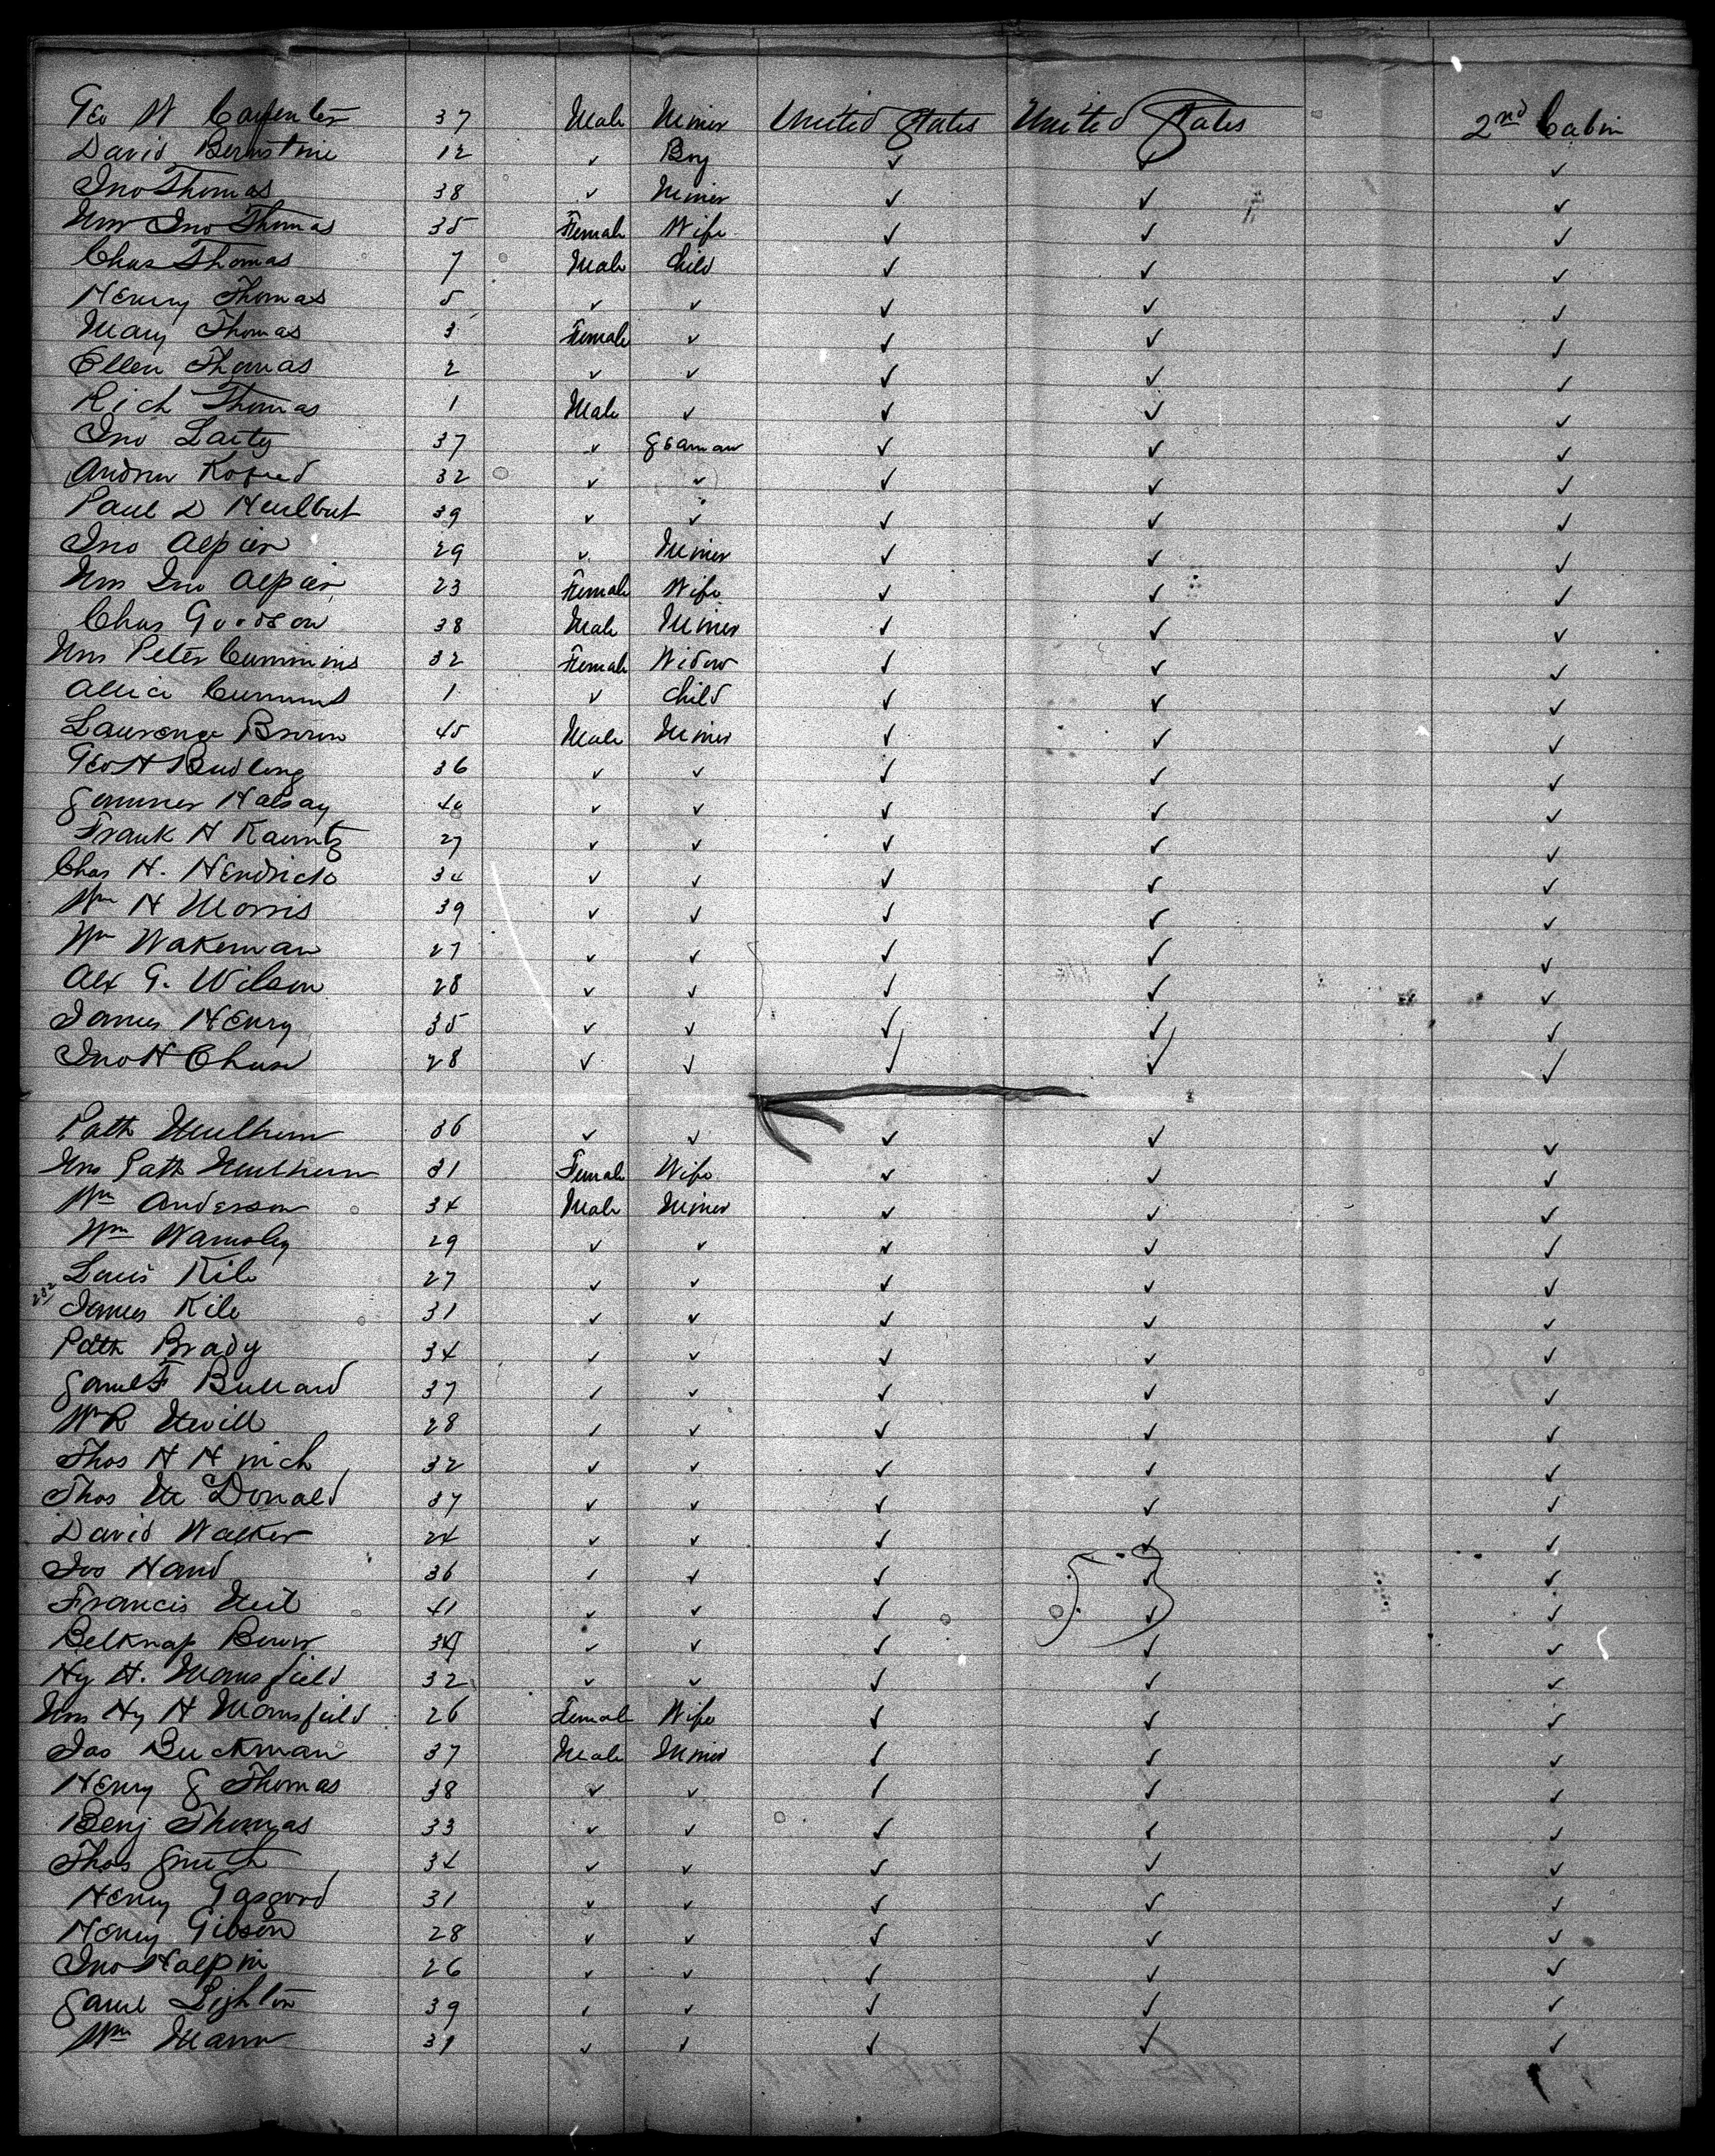 Geo W Carpenter 37 Male Miner United States United States 2nd Cabin
David Bernstine 12 ✓ Boy ✓ ✓ ✓
Jno Thomas 38 ✓ Miner ✓ ✓ ✓
Mrs Jno Thomas 35 Female Wife ✓ ✓ ✓
Chas Thomas 7 Male Child ✓ ✓ ✓
Henry Thomas 5 ✓ ✓ ✓ ✓ ✓
Mary Thomas 3 Female ✓ ✓ ✓ ✓
Ellen Thomas 2 ✓ ✓ ✓ ✓ ✓
Rich Thomas 1 Male ✓ ✓ ✓ ✓
Jno Laity 37 ✓ Seaman ✓ ✓ ✓
Andrew 32 ✓ ✓ ✓ ✓ ✓
Paul D Hulbut 39 ✓ ✓ ✓ ✓ ✓
Jno Alpin 29 ✓ Miner ✓ ✓ ✓
Mrs Jno Alpin 23 Female Wife ✓ ✓ ✓
Chas Goodson 38 Male Miner ✓ ✓ ✓
Mrs Peter Cummins 32 Female Widow ✓ ✓ ✓
Allice Cummins 1 ✓ Child ✓ ✓ ✓
Laurence Brown 45 Male Miner ✓ ✓ ✓
Geo H Budlong 36 ✓ ✓ ✓ ✓ ✓
Sommer Halsay 40 ✓ ✓ ✓ ✓ ✓
Frank H Kauntz 27 ✓ ✓ ✓ ✓ ✓
Chas H. Hendricks 34 ✓ ✓ ✓ ✓ ✓
Wm H Morris 39 ✓ ✓ ✓ ✓ ✓
Wm Wakeman 27 ✓ ✓ ✓ ✓ ✓
Alex G. Wilson 28 ✓ ✓ ✓ ✓ ✓
James Henry 35 ✓ ✓ ✓ ✓ ✓
Jno H Chase 28 ✓ ✓ ✓ ✓ ✓
Patk Mulhern 36 ✓ ✓ ✓ ✓ ✓
Mrs Patk Mulhern 31 Female Wife ✓ ✓ ✓
Wm Anderson 34 Male Miner ✓ ✓ ✓
Wm Wamsley 29 ✓ ✓ ✓ ✓ ✓
Louis Kile 27 ✓ ✓ ✓ ✓ ✓
202 James Kile 31 ✓ ✓ ✓ ✓ ✓
Patk Brady 34 ✓ ✓ ✓ ✓ ✓
Saml F Bullard 37 ✓ ✓ ✓ ✓ ✓
Wm R Nevill 28 ✓ ✓ ✓ ✓ ✓
Thos H H 32 ✓ ✓ ✓ ✓ ✓
Thos McDonald 37 ✓ ✓ ✓ ✓ ✓
David Walker 24 ✓ ✓ ✓ ✓ ✓
Jos Hand 36 ✓ ✓ ✓ ✓ ✓
Francis Neil 41 ✓ ✓ ✓ ✓ ✓
Belknap ✓ ✓ ✓ ✓ ✓
Hy H. Mansfield 32 ✓ ✓ ✓ ✓ ✓
Mrs Hy H Mansfield 26 Female Wife ✓ ✓ ✓
Jas Buckman 37 Male Miner ✓ ✓ ✓
Henry S Thomas 38 ✓ ✓ ✓ ✓ ✓
Benj Thomas 33 ✓ ✓ ✓ ✓ ✓
Thos Smith 34 ✓ ✓ ✓ ✓ ✓
Henry Gasgord 31 ✓ ✓ ✓ ✓ ✓
Henry Gibson 28 ✓ ✓ ✓ ✓ ✓
Jno Halpin 26 ✓ ✓ ✓ ✓ ✓
Saml Lighton 39 ✓ ✓ ✓ ✓ ✓
Wm Mann 31 ✓ ✓ ✓ ✓ ✓